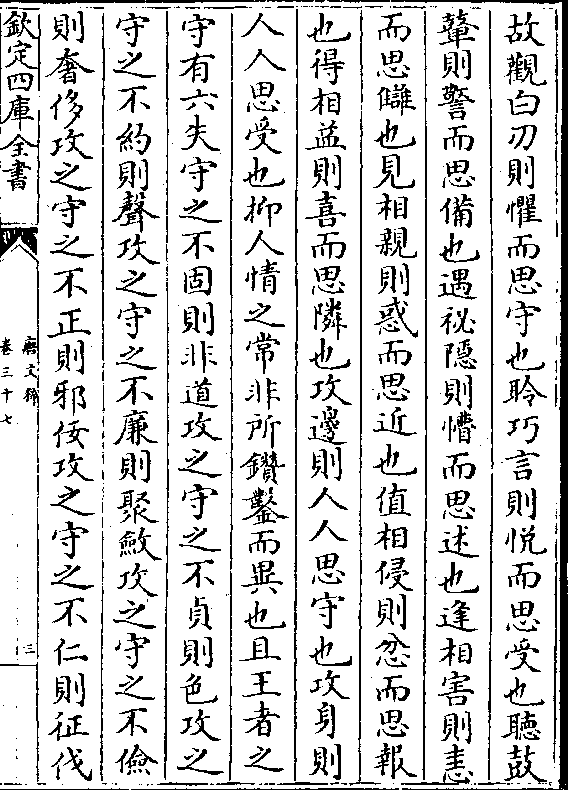 故觀白刃則懼而思守也聆巧言則悦而思受也聽鼓
鼙則警而思備也遇祕隠則慒而思述也逢相害則恚
而思讎也見相親則惑而思近也值相侵則忿而思報
也得相益則喜而思隣也攻邊則人人思守也攻身則
人人思受也抑人情之常非所鑽鑿而異也且王者之
守有六失守之不固則非道攻之守之不貞則色攻之
守之不約則聲攻之守之不廉則聚斂攻之守之不儉
則奢侈攻之守之不正則邪佞攻之守之不仁則征伐
欽定四庫全書
唐文粹
卷三十七
三